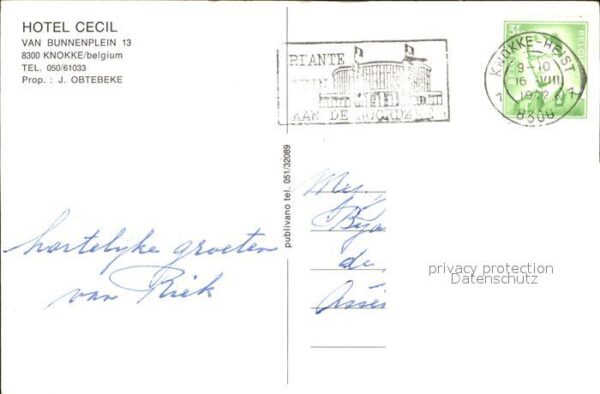 HOTEL CECIL
VAN BUNNENPLEIN 13
8300 KNOKKE/belgium
TEL. 050/61033
Prop. : J. OBTEBEKE
RIANTE
AAN DE NOORDZEE
KNOKKE-HEIST
9-10
16 -VIII
1972
7 7
8300
publivano tel. 051/32089
hartelijke groeten
van Riek
Mej.
de
privacy protection
Datenschutz